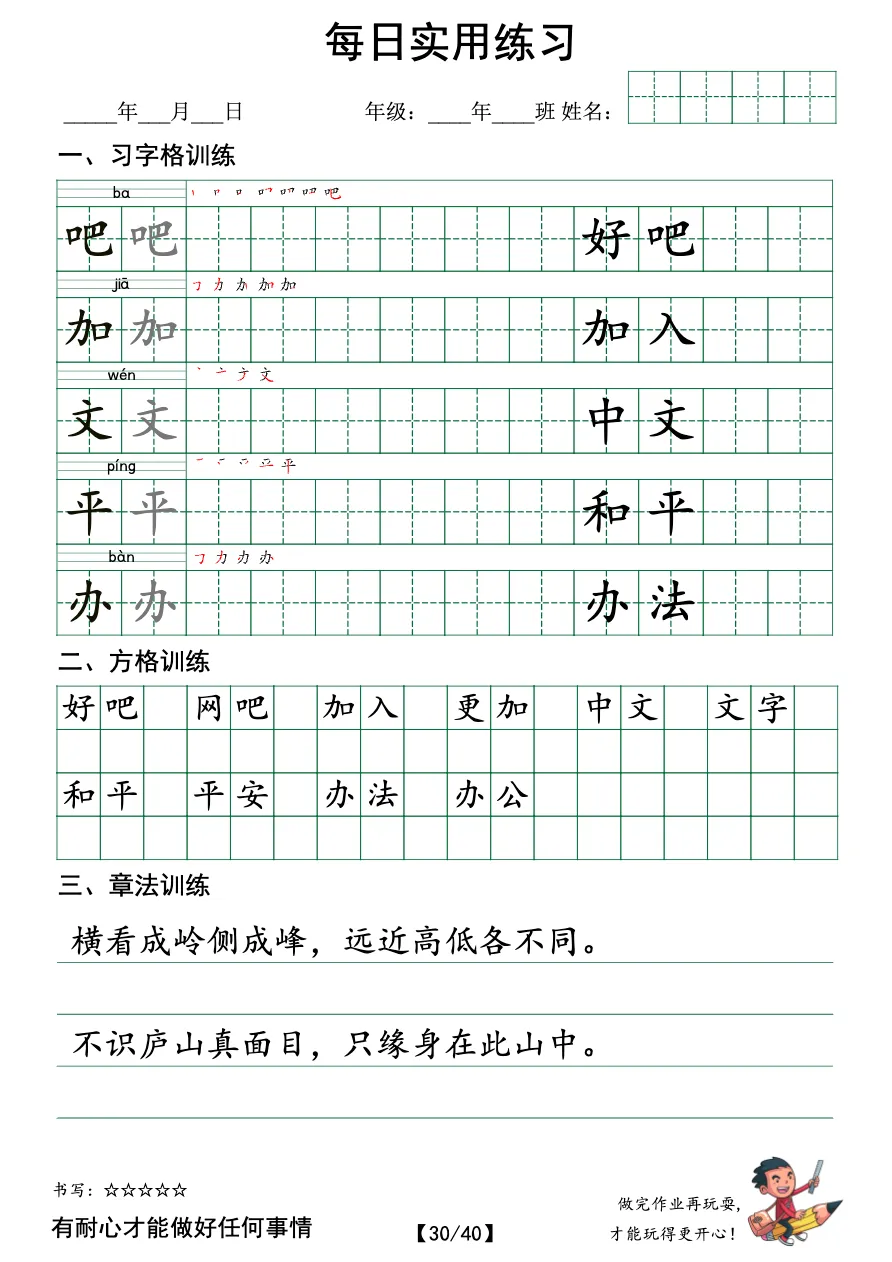 每日实用练习
_____年___月___日 年级：____年____班 姓名：
一、习字格训练
ba
吧 吧 好 吧
jiā
加 加 加 入
wén
文 文 中 文
píng
平 平 和 平
bàn
办 办 办 法
二、方格训练
好吧 网吧 加入 更加 中文 文字
和平 平安 办法 办公
三、章法训练
横看成岭侧成峰，远近高低各不同。
不识庐山真面目，只缘身在此山中。
书写：☆☆☆☆☆
做完作业再玩耍，
有耐心才能做好任何事情
【30/40】
才能玩得更开心！